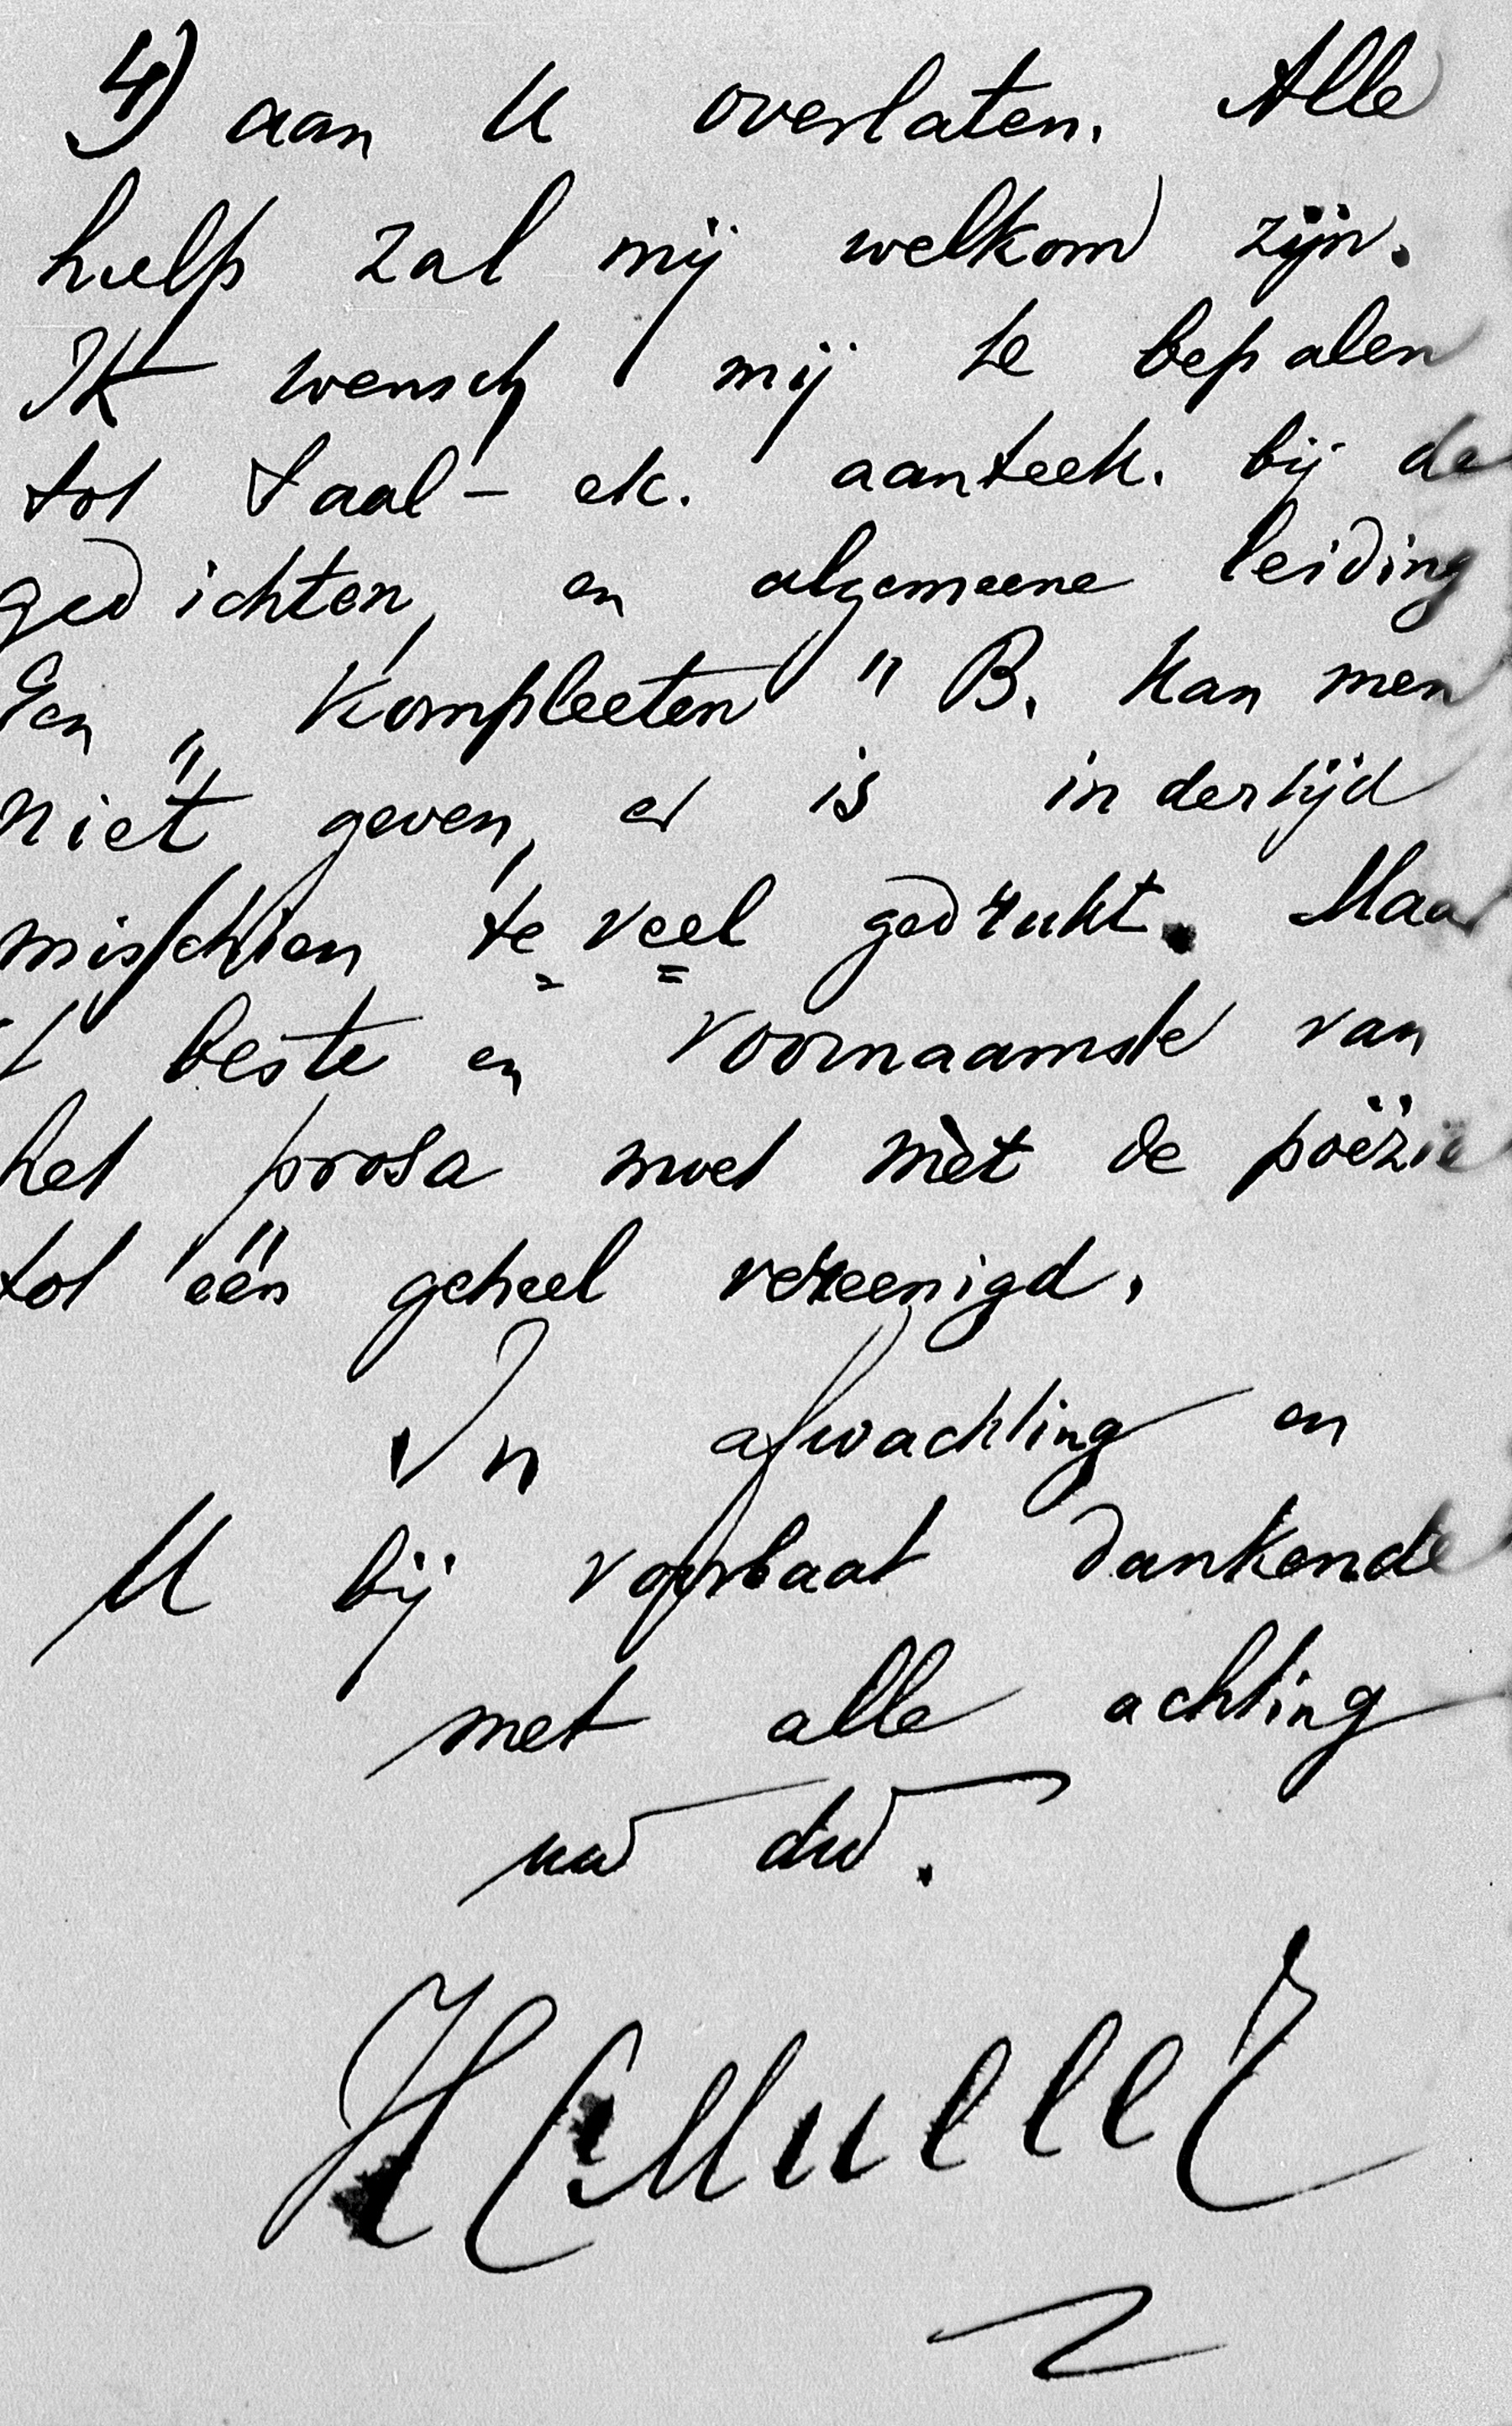 4) aan U overlaten. Alle
hulp zal mij welkom zijn.
Ik wensch mij te bepalen
tot taal- etc. aanteek. bij de
gedichten, en algemeene leiding
Een „Kompleeten" B. kan men
niet geven, er is indertijd
misschien te veel gedrukt. Maar
't beste en voornaamste van
het prosa moet mèt de poëzie
tot één geheel vereenigd.
In afwachting en
U bij voorbaat dankende
met alle achting
uw dw.
H C Muller